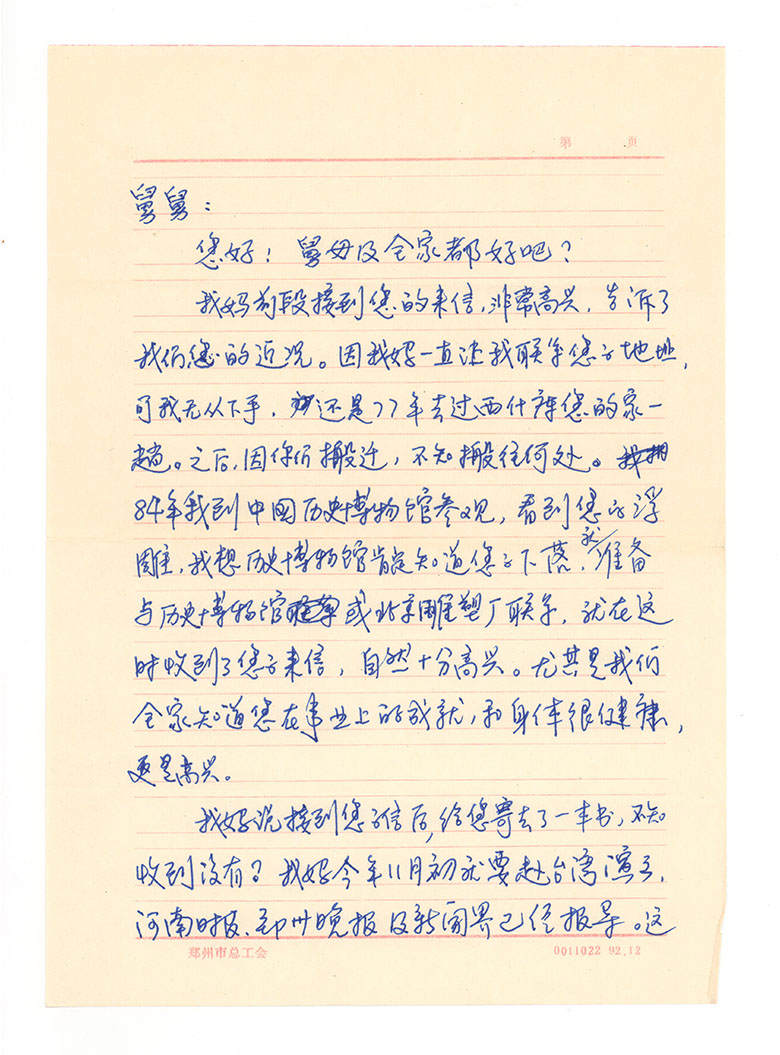 第 页
舅舅：
您好！舅母及全家都好吧？
我妈前段接到您的来信，非常高兴，告诉了
我们您的近况。因我妈一直让我联系您的地址，
可我无从下手，还是77年去过西什库您的家一
趟。之后，因你们搬迁，不知搬往何处。
84年我到中国历史博物馆参观，看到您的浮
雕，我想历史博物馆肯定知道您的下落，我准备
与历史博物馆或北京雕塑厂联系，就在这
时收到了您的来信，自然十分高兴。尤其是我们
全家知道您在事业上的成就，和身体很健康，
更是高兴。
我妈说接到您的信后，给您寄去了一本书，不知
收到没有？我妈今年11月初就要赴台湾演出，
河南日报、郑州晚报及新闻界已经报导。这
郑州市总工会 0011022 92.12